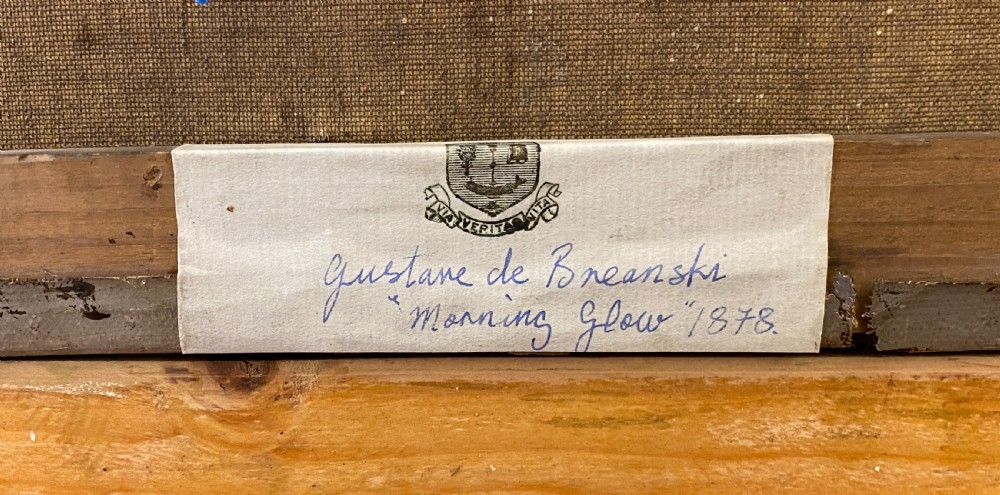 VIA VERITAS VITA
Gustave de Breanski
"Morning Glow" 1878.